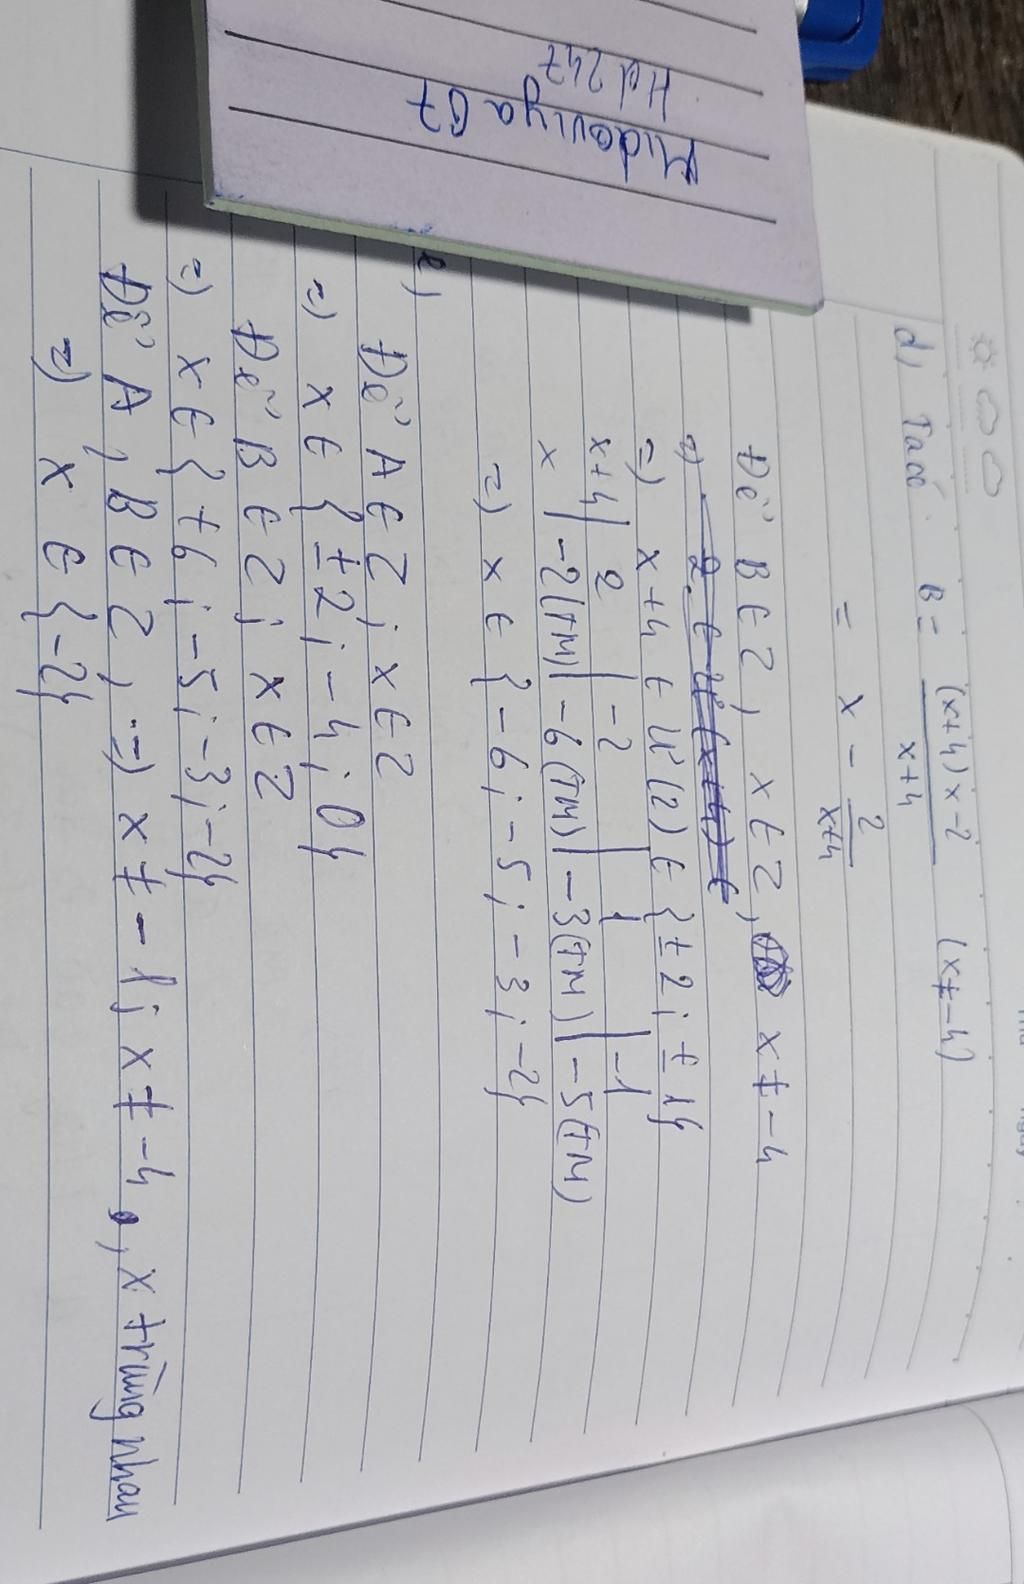 Midoviya 67
Hd 247
d) Ta có B = (x+4)x-2 / x+4 (x≠-4)
= x - 2/x+4
Để B ∈ Z, x ∈ Z, x ≠ -4
=) x+4 ∈ Ư(2) ∈ {±2; ±1}
x+4 | 2 | -2 | 1 | -1
x | -2(TM) | -6(TM) | -3(TM) | -5(TM)
=) x ∈ {-6; -5; -3; -2}
e)
Để A ∈ Z; x ∈ Z
=) x ∈ {±2; -4; 0}
Để B ∈ Z; x ∈ Z
=) x ∈ {+6; -5; -3; -2}
Để A, B ∈ Z, =) x ≠ -1; x ≠ -4, x trùng nhau
=) x ∈ {-2}